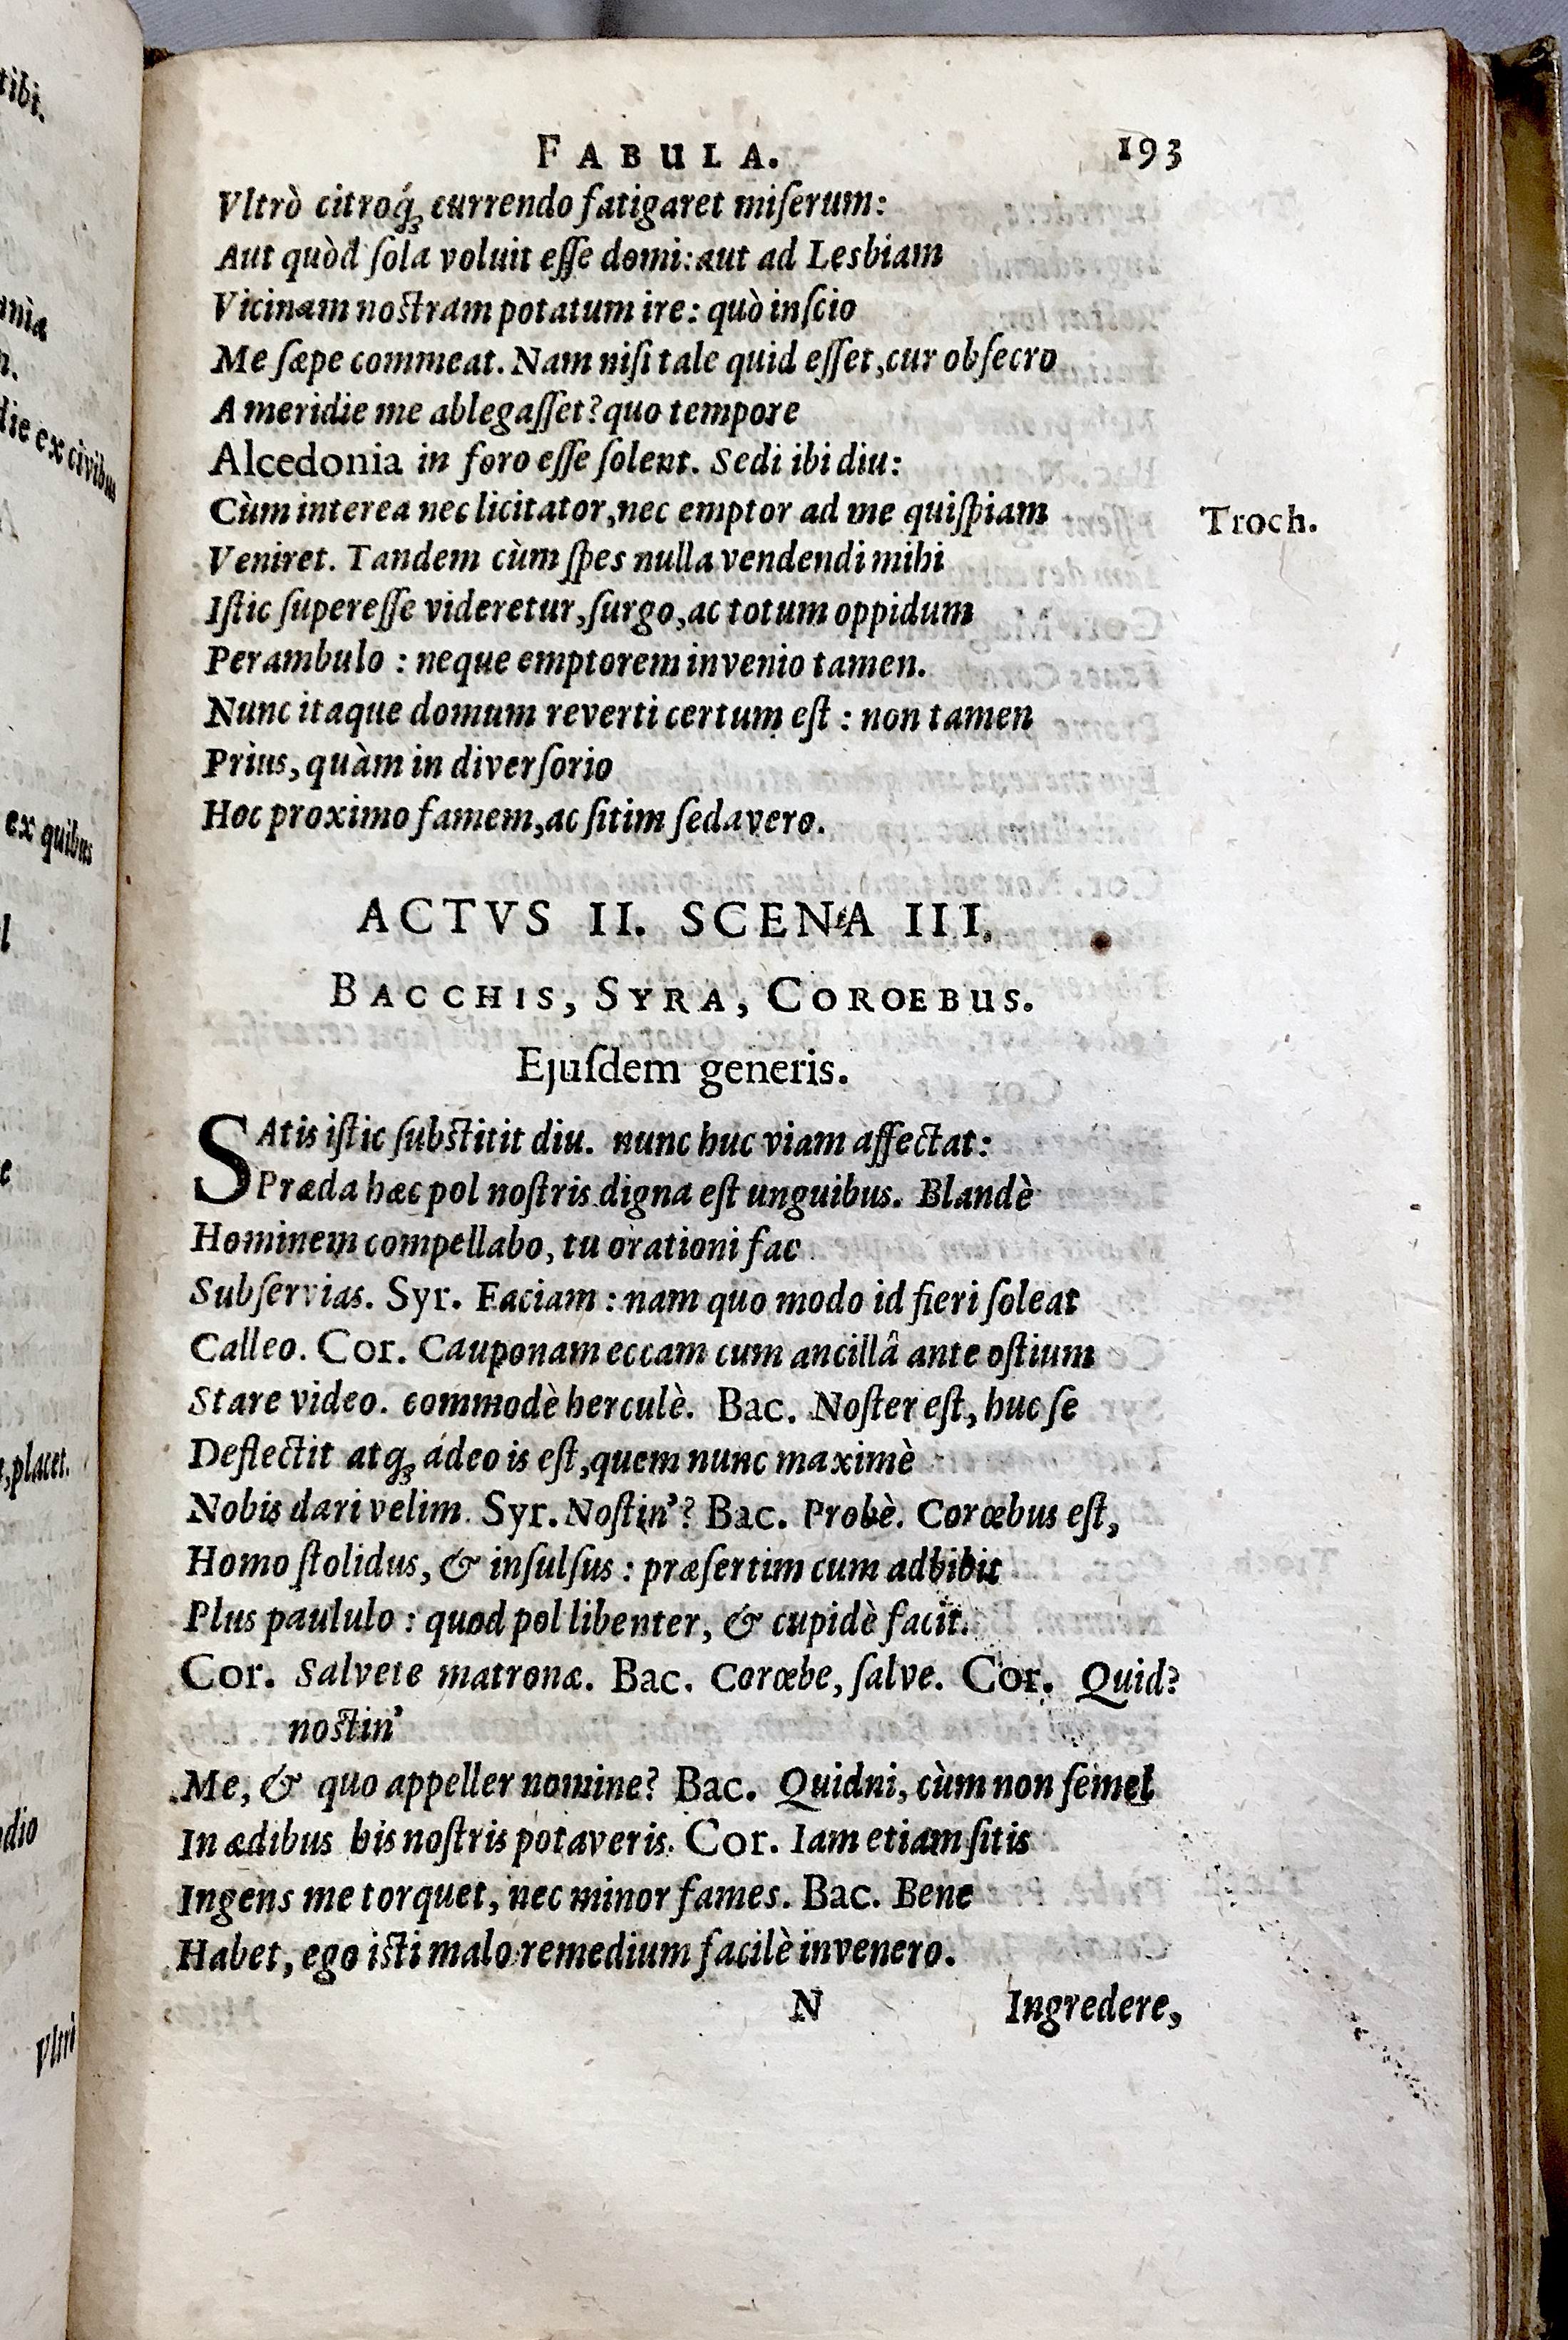 tibi.
ania
n.
die ex civibus
ex quibus
l
e
,placet.
dio
Vltrò
FABULA. 193
Vltrò citroq́ꝫ currendo fatigaret miſerum:
Aut quòd ſola voluit eſſe domi: aut ad Lesbiam
Vicinam noſtram potatum ire: quò inſcio
Me ſæpe commeat. Nam niſi tale quid eſſet, cur obſecro
A meridie me ablegaſſet? quo tempore
Alcedonia in foro eſſe ſolent. Sedi ibi diu:
Cùm interea nec licitator, nec emptor ad me quiſpiam
Troch.
Veniret. Tandem cùm ſpes nulla vendendi mihi
Iſtic ſupereſſe videretur, ſurgo, ac totum oppidum
Perambulo : neque emptorem invenio tamen.
Nunc itaque domum reverti certum eſt : non tamen
Prius, quàm in diverſorio
Hoc proximo famem, ac ſitim ſedavero.
ACTVS II. SCENA III.
BACCHIS, SYRA, COROEBUS.
Ejuſdem generis.
SAtis iſtic ſubſtitit diu. nunc huc viam affectat:
Præda hæc pol noſtris digna eſt unguibus. Blandè
Hominem compellabo, tu orationi fac
Subſervias. Syr. Faciam : nam quo modo id fieri ſoleat
Calleo. Cor. Cauponam eccam cum ancillâ ante oſtium
Stare video. commodè herculè. Bac. Noſter eſt, huc ſe
Deflectit atqꝫ ádeo is eſt, quem nunc maximè
Nobis dari velim. Syr. Noſtin'? Bac. Probè. Corœbus eſt,
Homo ſtolidus, & inſulſus : præſertim cum adbibit
Plus paululo : quod pol libenter, & cupidè facit.
Cor. Salvete matronæ. Bac. Corœbe, ſalve. Cor. Quid?
noſtin'
Me, & quo appeller nomine? Bac. Quidni, cùm non ſemel
In ædibus his noſtris potaveris. Cor. Iam etiam ſitis
Ingens me torquet, nec minor fames. Bac. Bene
Habet, ego iſti malo remedium facilè invenero.
N Ingredere,